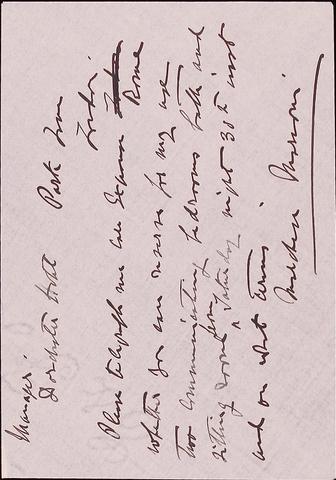 Manager.
Dorchester Hotel
Park Lane
London.
Please telegraph me care Express Rome
whether you can reserve for my use
two communicating bedrooms bath and
sitting room from Saturday night 30th inst
and on what terms.
Marchese Marconi